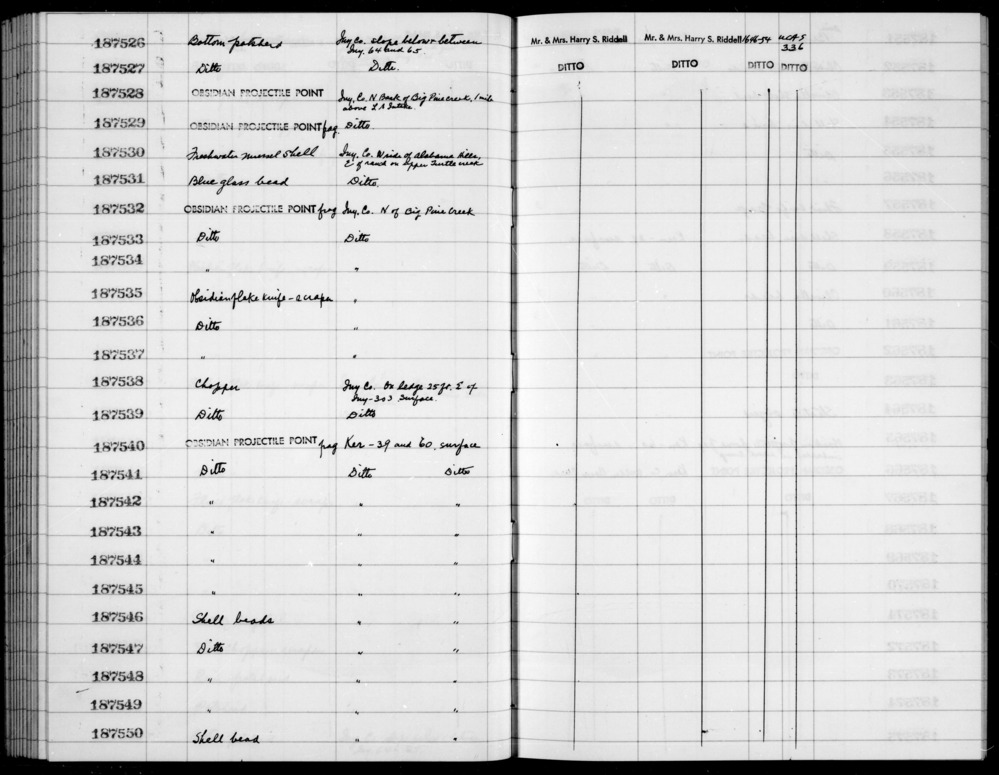 187526 Bottom potsherd Iny. Co. slope below + between Mr. & Mrs. Harry S. Riddell Mr. & Mrs. Harry S. Riddell UCAS
Iny. 64 and 65. 336
187527 Ditto Ditto. DITTO DITTO DITTO DITTO
187528 OBSIDIAN PROJECTILE POINT Iny. Co. N Bank of Big Pine creek, 1 mile
above L A Intake.
187529 OBSIDIAN PROJECTILE POINT frag Ditto.
187530 Freshwater mussel shell Iny. Co. N side of Alabama Hills,
E of ranch on upper Tuttle creek
187531 Blue glass bead Ditto.
187532 OBSIDIAN PROJECTILE POINT frag Iny. Co. N of Big Pine Creek
187533 Ditto Ditto
187534 " "
187535 Obsidian flake knife - scraper "
187536 Ditto "
187537 " "
187538 Chopper Iny Co. On ledge 25 ft. E of
Iny-303 surface.
187539 Ditto Ditto
187540 OBSIDIAN PROJECTILE POINT frag Ker - 39 and 60, surface
187541 Ditto Ditto Ditto
187542 " " "
187543 " " "
187544 " " "
187545 " " "
187546 Shell beads " "
187547 Ditto " "
187548 " " "
187549 " " "
187550 Shell bead " "